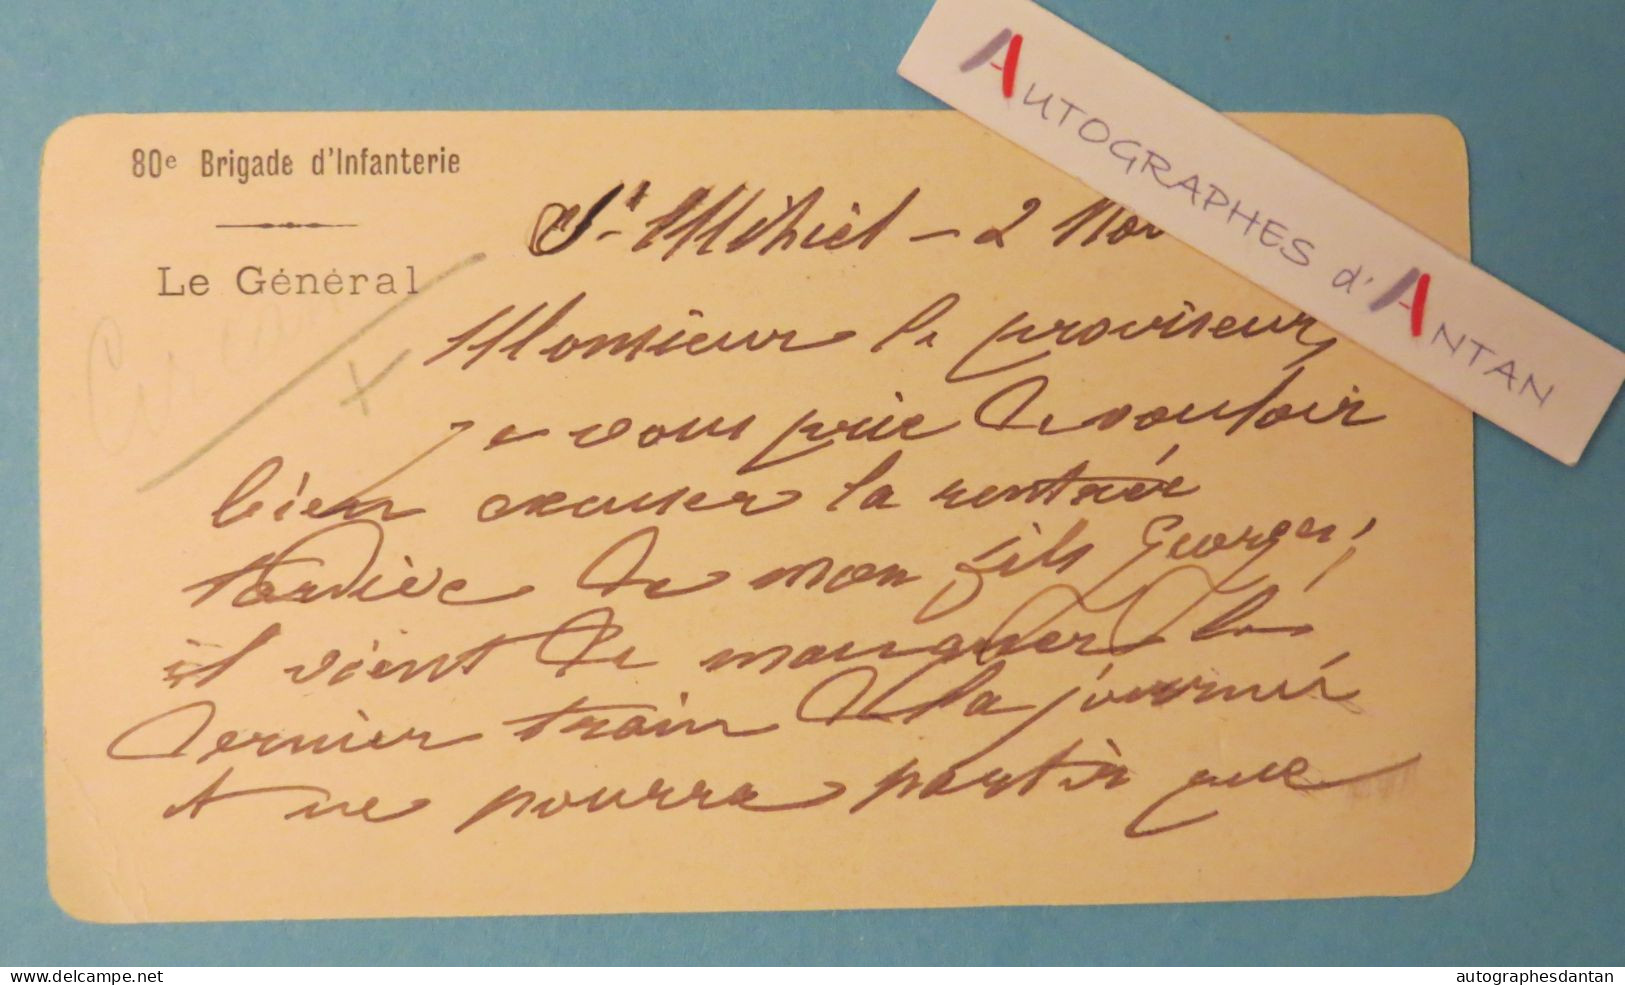 AUTOGRAPHES d'ANTAN
80e Brigade d'Infanterie
Le Général
St Mihiel - 2 Nov
Monsieur le proviseur,
je vous prie de vouloir
bien excuser la rentrée
tardive de mon fils Georges;
il vient de manquer le
dernier train de la journée
et ne pourra partir que
www.delcampe.net
autographesdantan